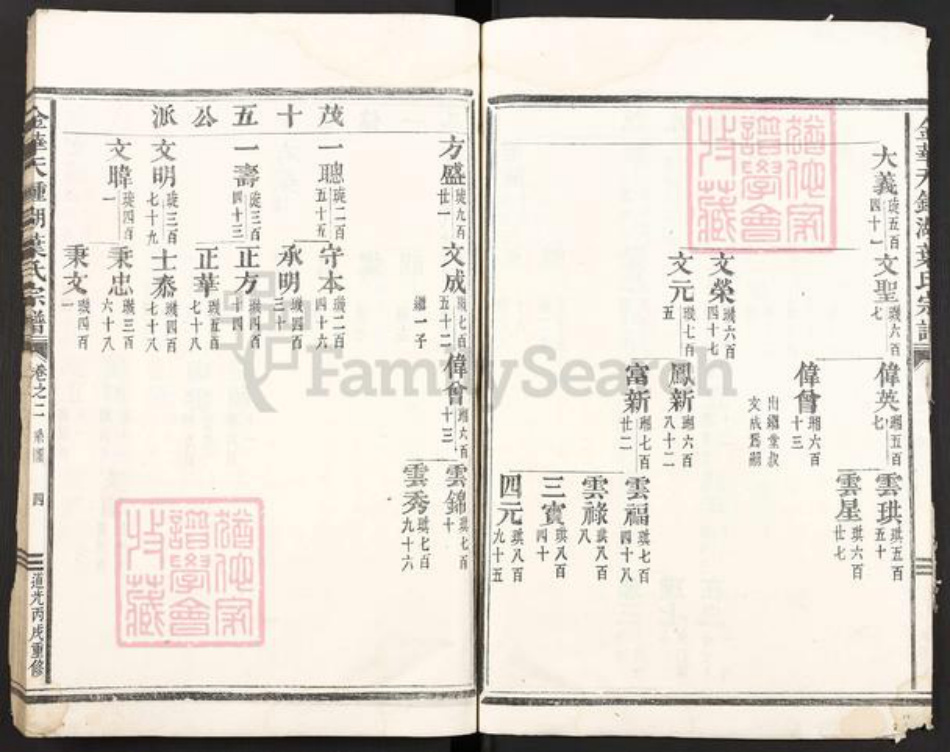 大義 璇五百四十一
文聖 璣六百七
偉英 瑚五百七
雲珙 琪五百五十
雲星 琪六百廿七
偉會 瑚六百十三
出繼堂叔文成爲嗣
文榮 璣六百四十七
文元 璣七百五
鳳新 瑚六百八十二
富新 瑚七百廿二
雲福 琪七百四十八
雲祿 琪八百八
三寶 琪八百四十
四元 琪八百九十五
方盛 璇九百廿一
文成 璣七百五十二
繼一子
偉會 瑚六百十三
雲錦 琪七百十
雲秀 琪七百九十六
茂十五公派
一聰 璇二百五十五
守本 璣二百四十六
承明 璣四百三十
一壽 璇三百四十三
正方 璣四百
正華 璣五百七十八
文明 璇三百七十九
士泰 璣四百七十八
文暐 璇四百一
秉忠 璣三百六十八
秉文 璣四百一
金華天鍾湖葉氏宗譜
卷之二
四
道光丙戌重修
譜學會
收藏
FamilySearch